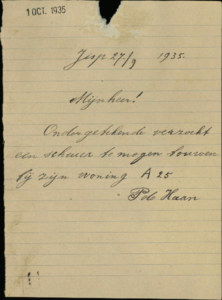 1 OCT. 1935
Jisp 27/9 1935.
Mijnheer!
Ondergetekende verzoekt
een schuur te mogen bouwen
bij zijn woning A 25
P de Haan